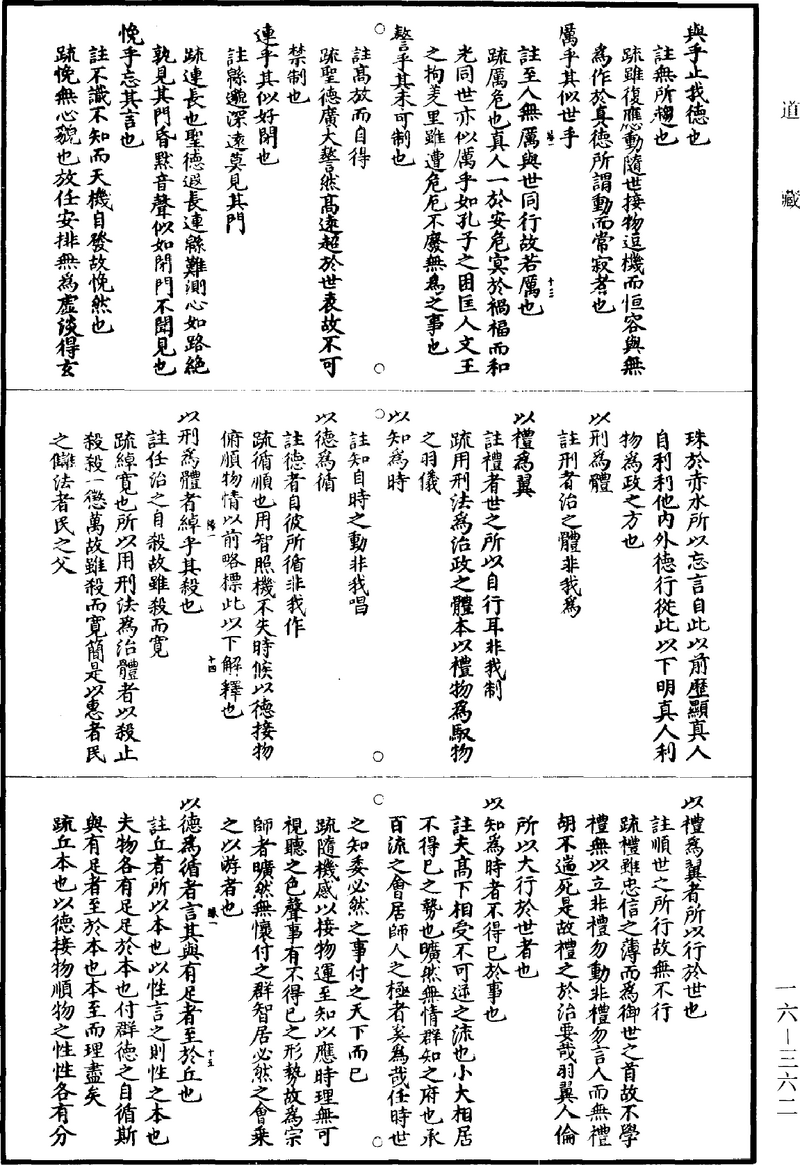 道藏
與乎止我德也
註無所趨也
疏雖復應動隨世接物逗機而恒容與無
為作於真德所謂動而常寂者也
厲乎其似世乎
註至人無厲與世同行故若厲也
十三
疏厲危也真人一於安危冥於禍福而和
光同世亦似厲乎如孔子之困匡人文王
之拘羑里雖遭危厄不廢無為之事也
謷乎其未可制也
註高放而自得
疏聖德廣大謷然高遠超於世表故不可
禁制也
連乎其似好閉也
註緜邈深遠莫見其門
疏連長也聖德遐長連緜難測心如路絕
孰見其門昏默音聲似如閉門不聞見也
悗乎忘其言也
註不識不知而天機自發故悗然也
疏悗無心貌也放任安排無為虛淡得玄
珠於赤水所以忘言自此以前歷顯真人
自利利他內外德行從此以下明真人利
物為政之方也
以刑為體
註刑者治之體非我為
以禮為翼
註禮者世之所以自行耳非我制
疏用刑法為治政之體本以禮物為馭物
之羽儀
以知為時
註知自時之動非我唱
以德為循
註德者自彼所循非我作
疏循順也用智照機不失時候以德接物
俯順物情以前略標此以下解釋也
十四
以刑為體者綽乎其殺也
註任治之自殺故雖殺而寬
疏綽寬也所以用刑法為治體者以殺止
殺殺一懲萬故雖殺而寬簡是以惠者民
之讎法者民之父
以禮為翼者所以行於世也
註順世之所行故無不行
疏禮雖忠信之薄而為御世之首故不學
禮無以立非禮勿動非禮勿言人而無禮
胡不遄死是故禮之於治要哉羽翼人倫
所以大行於世者也
以知為時者不得已於事也
註夫高下相受不可逆之流也小大相居
不得已之勢也曠然無情群知之府也承
百流之會居師人之極者奚為哉任時世
之知委必然之事付之天下而已
疏隨機感以接物運至知以應時理無可
視聽之色聲事有不得已之形勢故為宗
師者曠然無懷付之群智居必然之會乘
之以游者也
以德為循者言其與有足者至於丘也
十五
註丘者所以本也以性言之則性之本也
夫物各有足足於本也付群德之自循斯
與有足者至於本也本至而理盡矣
疏丘本也以德接物順物之性性各有分
一六—三六二